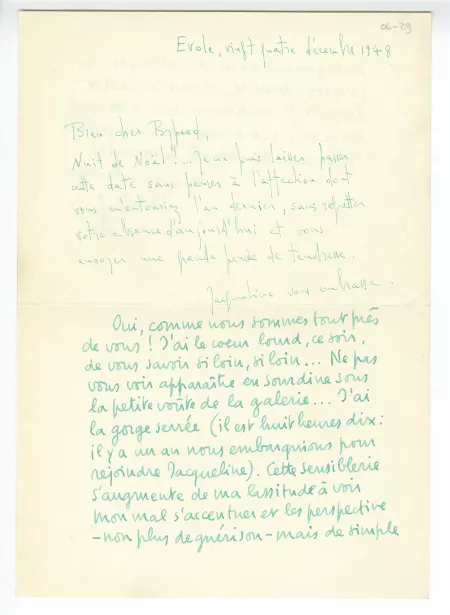 06-29
Evole, vingt quatre décembre 1948
Bien cher Bypeed,
Nuit de Noël !... Je ne puis laisser passer
cette date sans penser à l'affection dont
vous m'entouriez l'an dernier, sans regretter
votre absence d'aujourd'hui et vous
envoyer une grande pensée de tendresse.
Jacqueline vous embrasse.
Oui, comme nous sommes tout près
de vous ! J'ai le coeur lourd, ce soir,
de vous savoir si loin, si loin... Ne pas
vous voir apparaître en sourdine sous
la petite voûte de la galerie... J'ai
la gorge serrée (il est huit heures dix:
il y a un an nous embarquions pour
rejoindre Jacqueline). Cette sensiblerie
s'augmente de ma lassitude à voir
mon mal s'accentuer et les perspective
-non plus de guérison- mais de simple